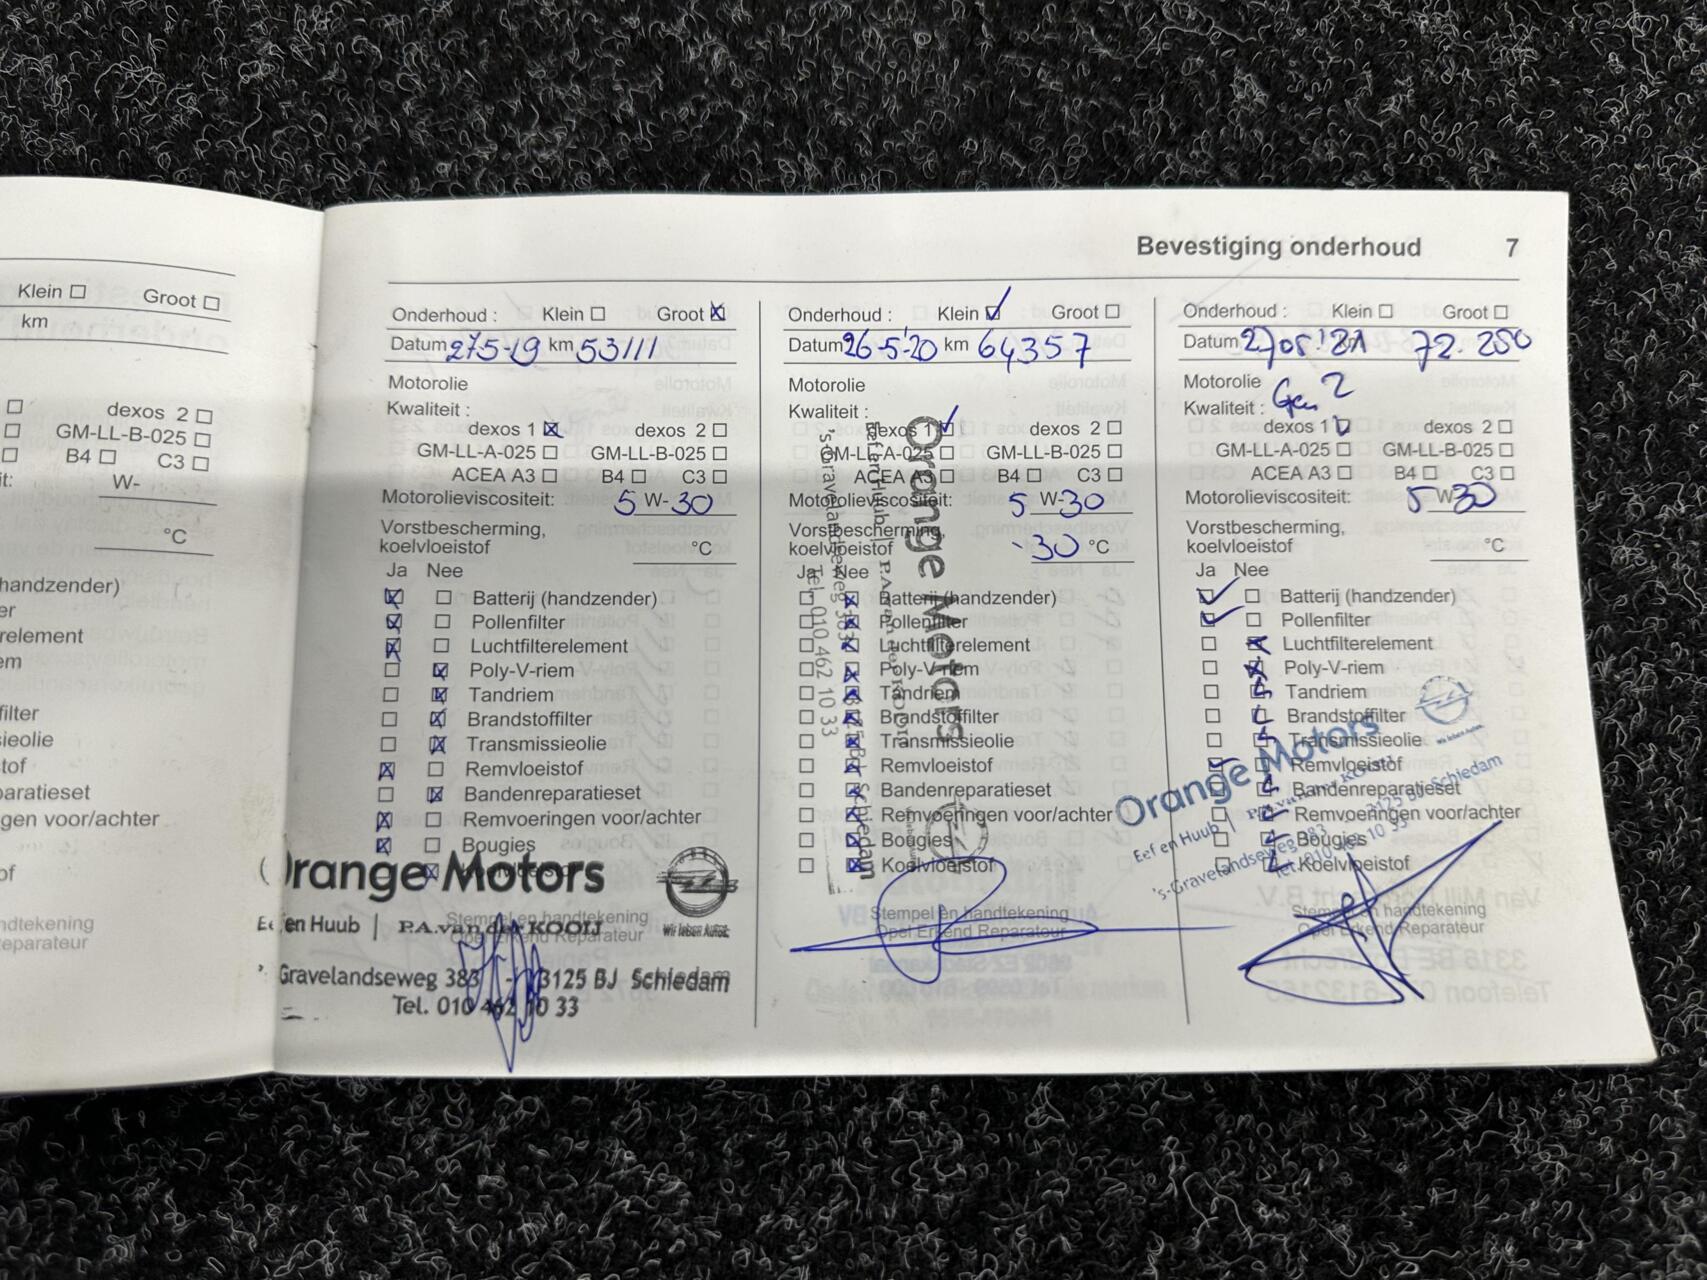 Bevestiging onderhoud 7
Klein Groot
km
dexos 2
GM-LL-B-025
B4 C3
W-
°C
handzender)
relement
Onderhoud : Klein Groot
Datum 27-5-19 km 53111
Motorolie
Kwaliteit :
dexos 1 dexos 2
GM-LL-A-025 GM-LL-B-025
ACEA A3 B4 C3
Motorolieviscositeit: 5 W-30
Vorstbescherming,
koelvloeistof °C
Ja Nee
Batterij (handzender)
Pollenfilter
Luchtfilterelement
Poly-V-riem
Tandriem
Brandstoffilter
Transmissieolie
Remvloeistof
Bandenreparatieset
Remvoeringen voor/achter
Bougies
Koelvloeistof
Orange Motors
Stempel en handtekening
Opel Erkend Reparateur
Eef en Huub | P.A. van der KOOIJ
Wir leben Autos.
's-Gravelandseweg 383 - 3125 BJ Schiedam
Tel. 010 462 10 33
Onderhoud : Klein Groot
Datum 26-5-'20 km 64357
Motorolie
Kwaliteit :
dexos 1 dexos 2
GM-LL-A-025 GM-LL-B-025
ACEA A3 B4 C3
Motorolieviscositeit: 5 W-30
Vorstbescherming,
koelvloeistof -30 °C
Ja Nee
Batterij (handzender)
Pollenfilter
Luchtfilterelement
Poly-V-riem
Tandriem
Brandstoffilter
Transmissieolie
Remvloeistof
Bandenreparatieset
Remvoeringen voor/achter
Bougies
Koelvloeistof
Stempel en handtekening
Opel Erkend Reparateur
Orange Motors
Eef en Huub | P.A. van der KOOIJ
's-Gravelandseweg 383 - 3125 BJ Schiedam
Tel. 010 462 10 33
Onderhoud : Klein Groot
Datum 27/05 '21 km 72.250
Motorolie Gen 2
Kwaliteit :
dexos 1 dexos 2
GM-LL-A-025 GM-LL-B-025
ACEA A3 B4 C3
Motorolieviscositeit: 5 W-30
Vorstbescherming,
koelvloeistof °C
Ja Nee
Batterij (handzender)
Pollenfilter
Luchtfilterelement
Poly-V-riem
Tandriem
Brandstoffilter
Transmissieolie
Remvloeistof
Bandenreparatieset
Remvoeringen voor/achter
Bougies
Koelvloeistof
Stempel en handtekening
Opel Erkend Reparateur
Orange Motors
Wir leben Autos.
Eef en Huub | P.A. van der KOOIJ
's-Gravelandseweg 383 3125 BJ Schiedam
Tel. 010 462 10 33